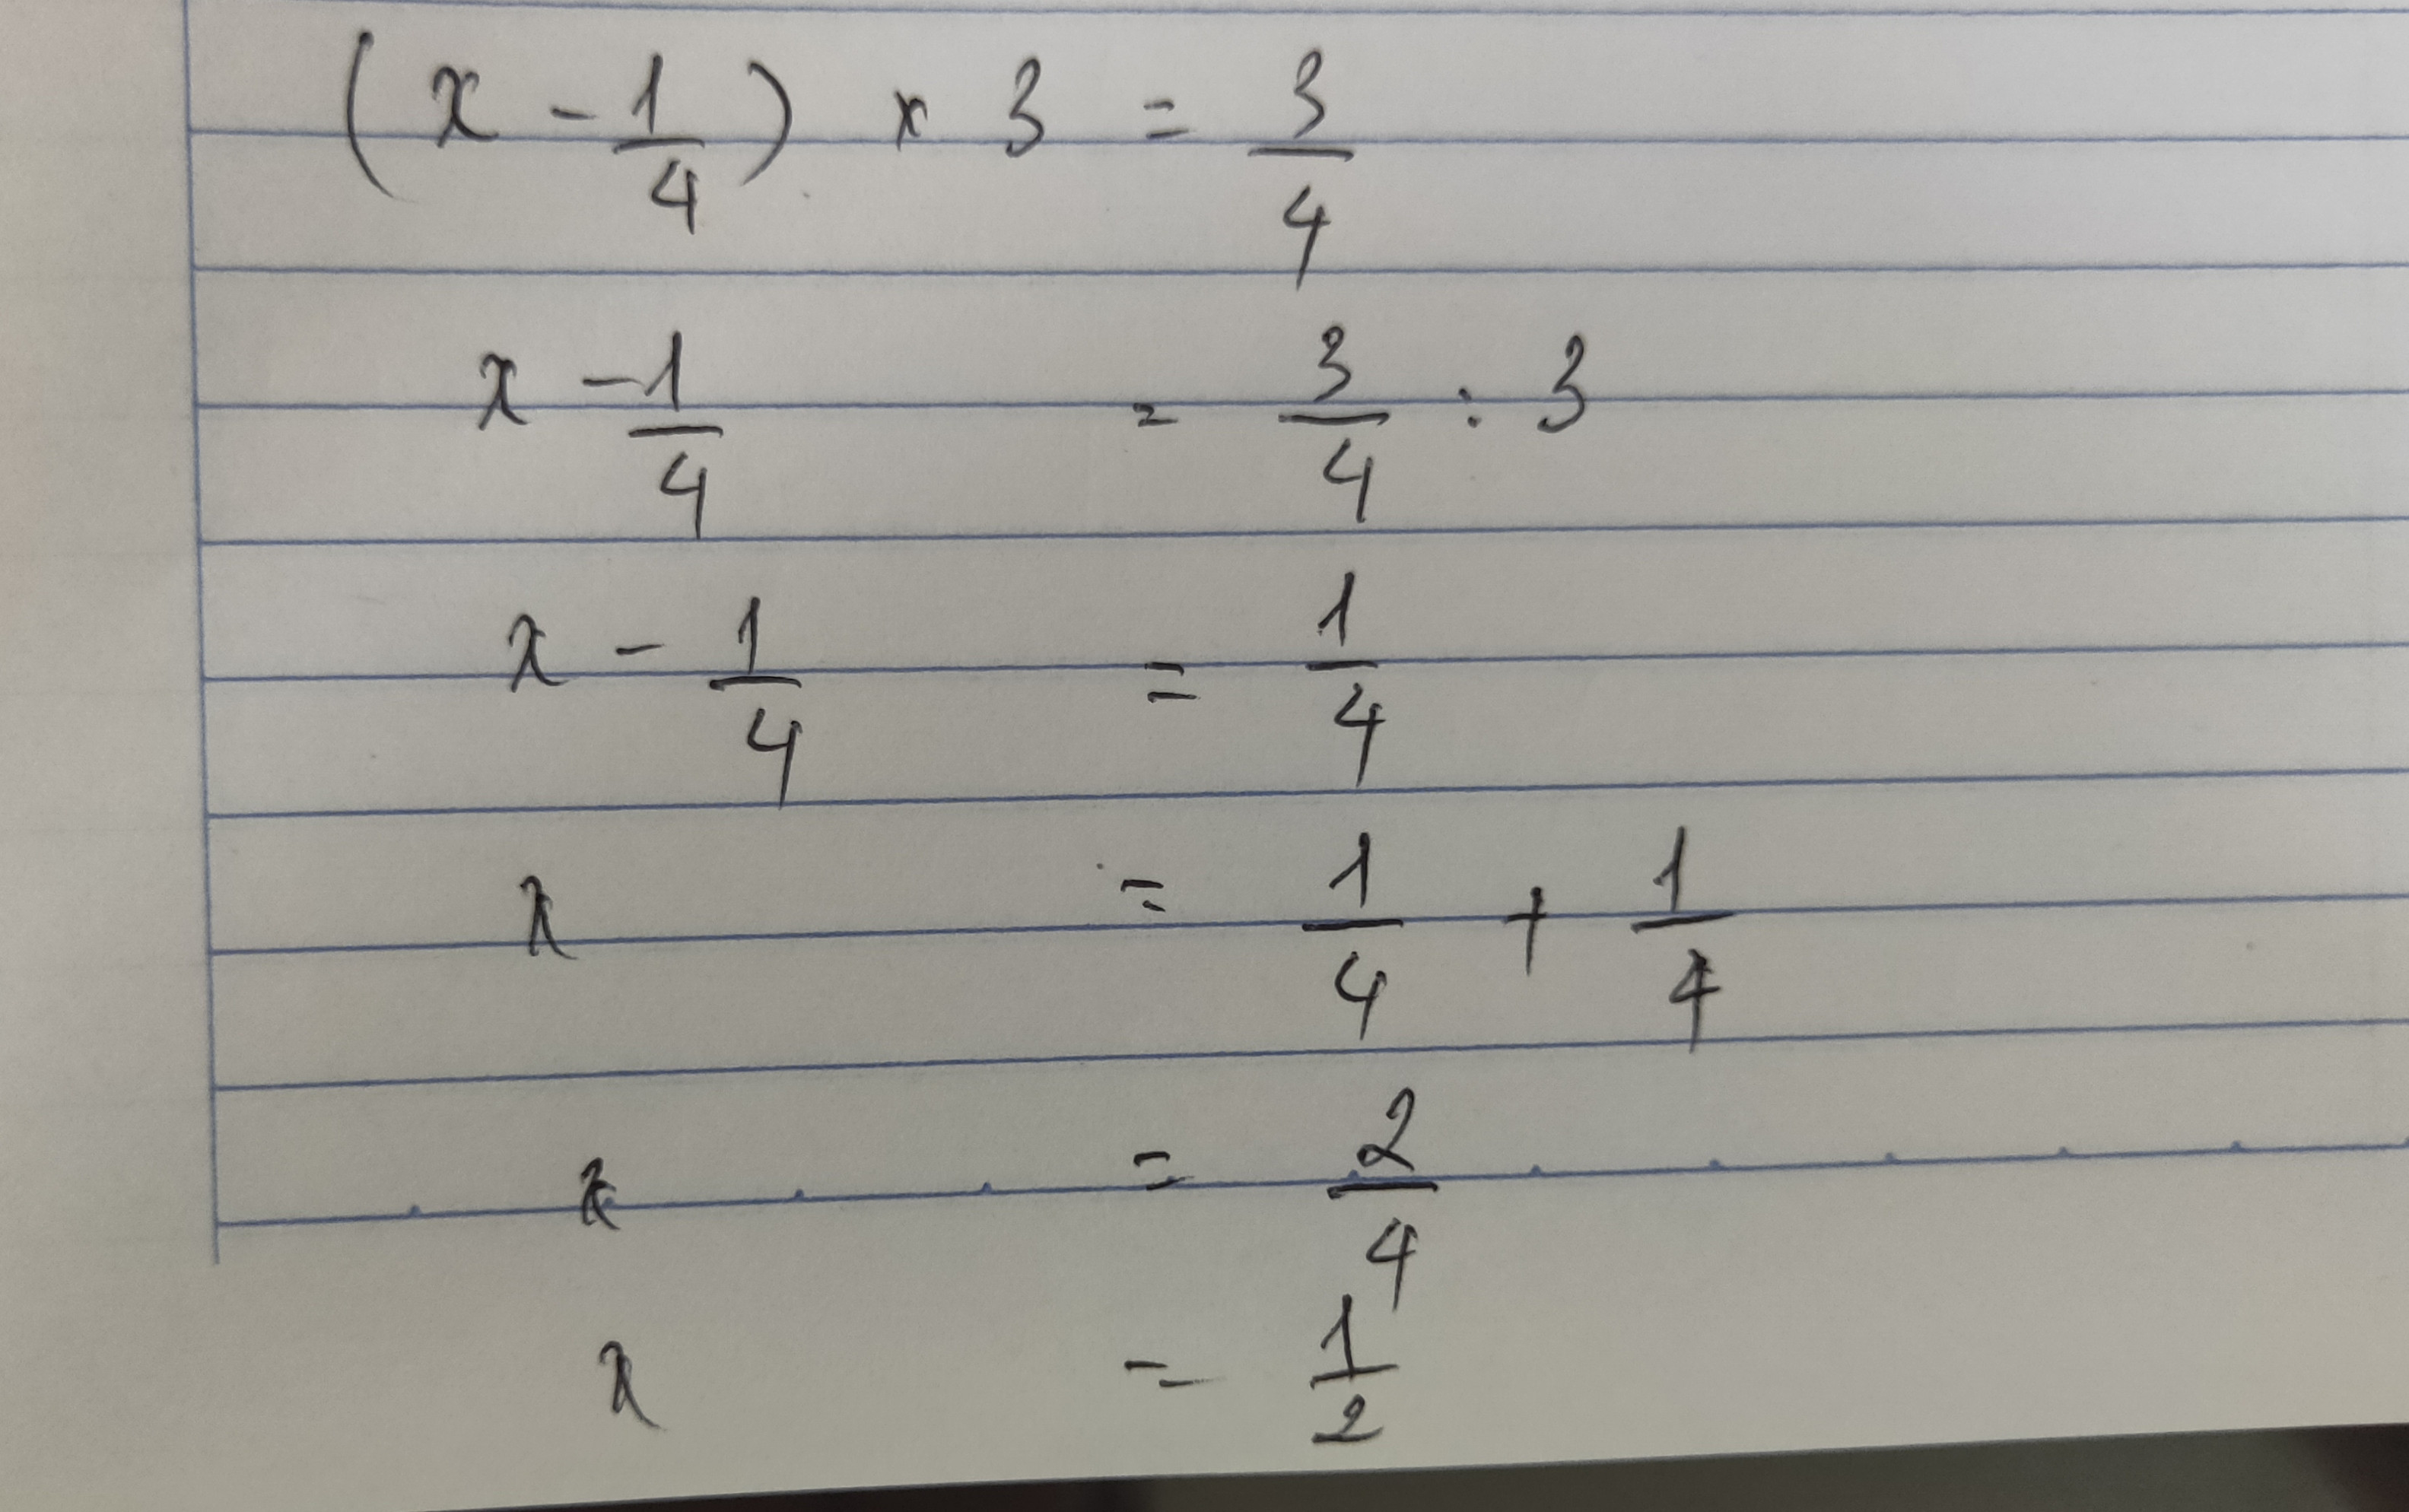 (x - 1/4) × 3 = 3/4
x - 1/4 = 3/4 : 3
x - 1/4 = 1/4
x = 1/4 + 1/4
x = 2/4
x = 1/2